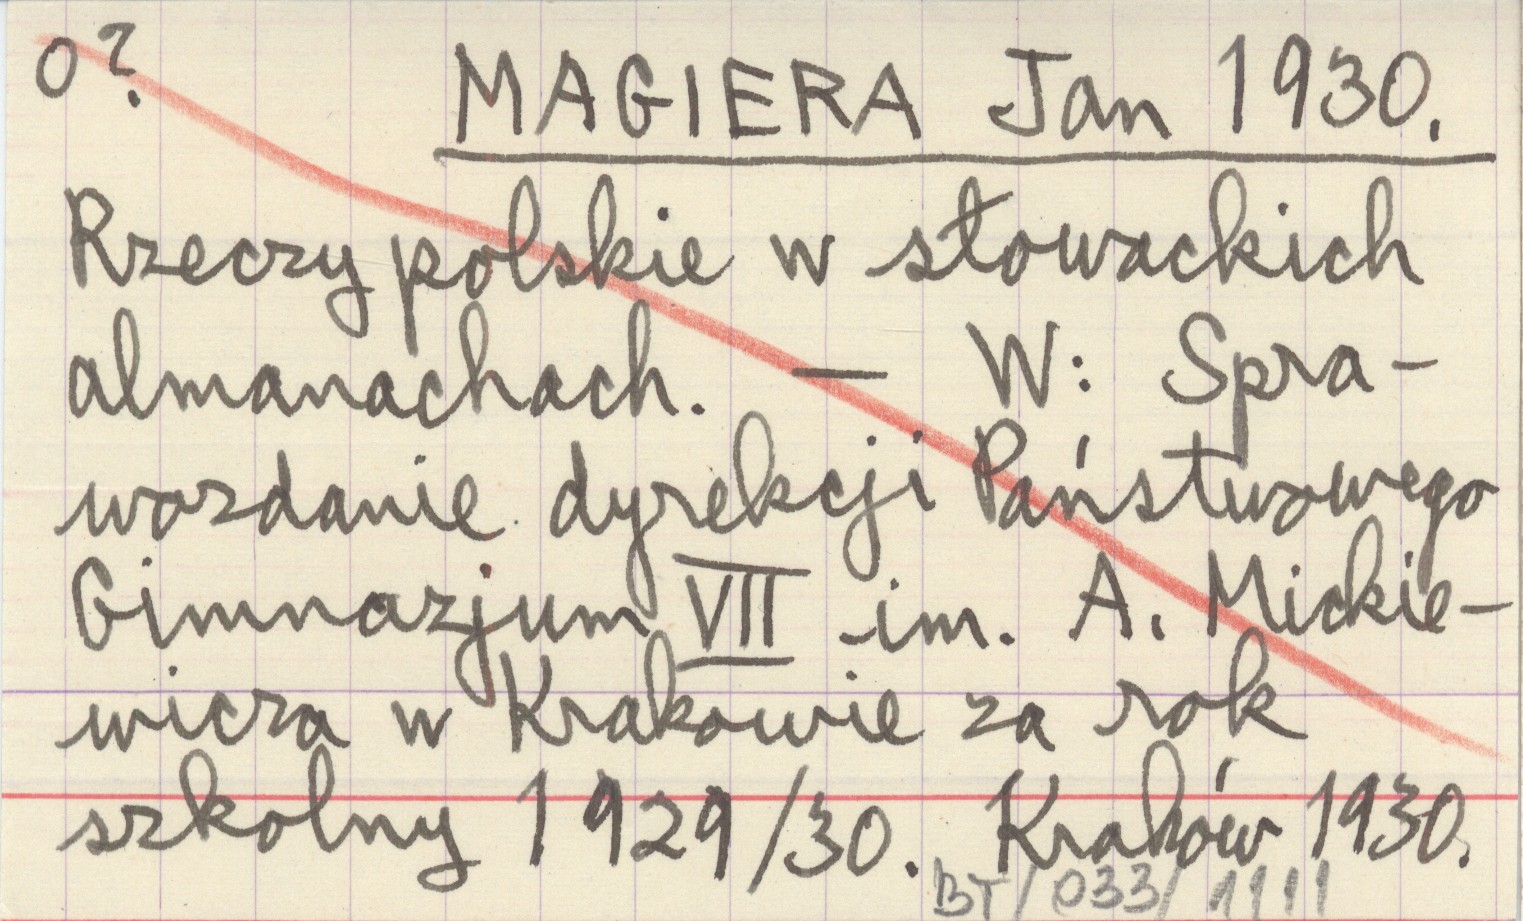 o?
MAGIERA Jan 1930.
Rzeczy polskie w słowackich
almanachach. — W: Spra-
wozdanie dyrekcji Państwowego
Gimnazjum VII im. A. Mickie-
wicza w Krakowie za rok
szkolny 1929/30. Kraków 1930.
BT/033/1111